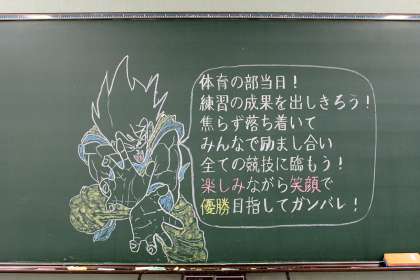 体育の部当日！
練習の成果を出しきろう！
焦らず落ち着いて
みんなで励まし合い
全ての競技に臨もう！
楽しみながら笑顔で
優勝目指してガンバレ！